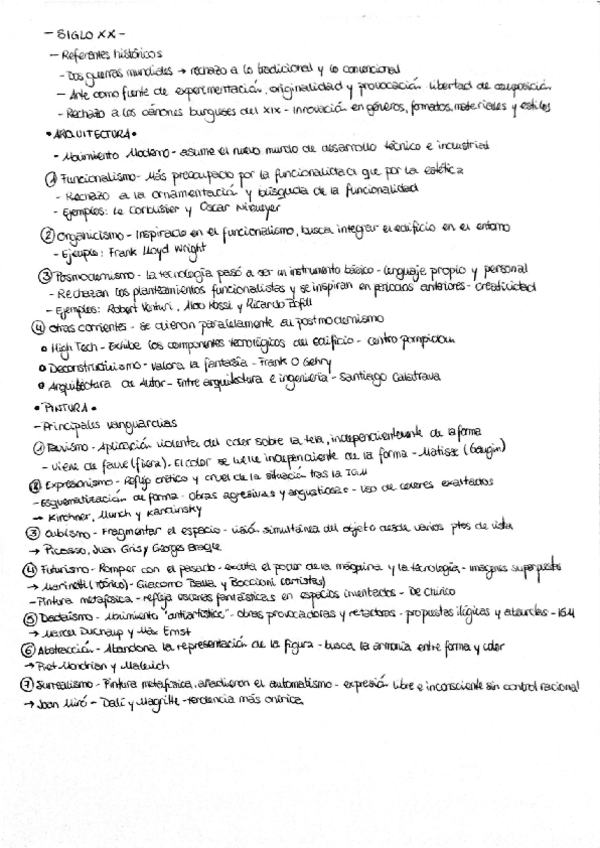 - SIGLO XX -
- Referentes históricos
- Dos guerras mundiales → rechazo a lo tradicional y lo convencional
- Arte como fuente de experimentación, originalidad y provocación libertad de composición
- Rechazo a los cánones burgueses del XIX - Innovación en géneros, formatos, materiales y estilos
• ARQUITECTURA •
- Movimiento Moderno - asume el nuevo mundo de desarrollo técnico e industrial
① Funcionalismo - Más preocupado por la funcionalidad que por la estética
- Rechazo a la ornamentación y búsqueda de la funcionalidad
- Ejemplos: Le Corbusier y Oscar Niemeyer
② Organicismo - Inspirado en el funcionalismo, busca integrar el edificio en el entorno
- Ejemplo: Frank Lloyd Wright
③ Posmodernismo - La tecnología pasó a ser un instrumento básico - lenguaje propio y personal
- Rechazan los planteamientos funcionalistas y se inspiran en periodos anteriores - creatividad
- Ejemplos: Robert Venturi, Aldo Rossi y Ricardo Bofill
④ Otras corrientes - se dieron paralelamente al postmodernismo
• High Tech - Exhibe los componentes tecnológicos del edificio - centro pompidou
• Deconstructivismo - valora la fantasía - Frank O Gehry
• Arquitectura de Autor - Entre arquitectura e ingeniería - Santiago Calatrava
• PINTURA •
- Principales vanguardias
① Fauvismo - Aplicación violenta del color sobre la tela, independientemente de la forma
- Viene de fauve (fiera). El color se vuelve independiente de la forma - Matisse (Gaugin)
② Expresionismo - Reflejo crítico y cruel de la situación tras la IGM
- Esquematización de forma - Obras agresivas y angustiosas - uso de colores exaltados
→ Kirchner, Munch y Kandinsky
③ Cubismo - Fragmentar el espacio - visión simultánea del objeto desde varios ptos de vista
→ Picasso, Juan Gris y Georges Braque
④ Futurismo - Romper con el pasado - exalta el poder de la máquina y la tecnología - imágenes superpuestas
→ Marinetti (teórico) - Giacomo Balla y Boccioni (artistas)
- Pintura metafísica - refleja escenas fantásticas en espacios inventados - De Chirico
⑤ Dadaísmo - Movimiento "antiartístico" - obras provocadoras y retadoras - propuestas ilógicas y absurdas - IGM
→ Marcel Duchamp y Max Ernst
⑥ Abstracción - Abandona la representación de la figura - busca la armonía entre forma y color
→ Piet Mondrian y Malevich
⑦ Surrealismo - Pintura metafísica, añadieron el automatismo - expresión libre e inconsciente sin control racional
→ Joan Miró - Dalí y Magritte - tendencia más onírica